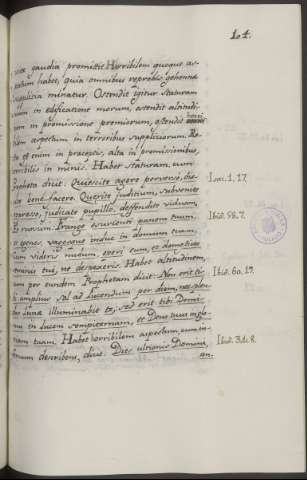 14.
gaudia promittit Horribilem quoque as-
habet, quia omnibus reprobis gehennæ
supplicia minatur. Ostendit igitur staturam
in edificatione morum, ostendit altitudi-
in promissione premiorum, ostendit
aspectum in terroribus suppliciorum. Re-
et enim in præceptis, alta in promissionibus,
in minis. Habet staturam, cum
Propheta dicit: Quiescite agere perversè, dis-
benè facere. Querite juditium, subvenite
oppresso, judicate pupillo, deffendite viduam,
Et russum. Frange esurienti panem tuum,
et egenos, vagosque induc in domum tuam,
cum videris nudum, operi eum, et domesticos
tuos, ne despexeris. Habet altitudinem,
cum per eundem Prophetam dicit: Non erit ti-
amplius sol ad lucendum per diem, nec
Lunæ illuminabit te, sed erit tibi Domi-
in lucem sempiternam, et Deus tuus in glo-
riam tuam. Habet horribilem aspectum, cum in-
describens, dicit: Dies ultionis Domini,
an-
Isai. 1, 17.
Ibid. 58, 7.
Ibid. 60, 19.
Ibid. 34: 8.